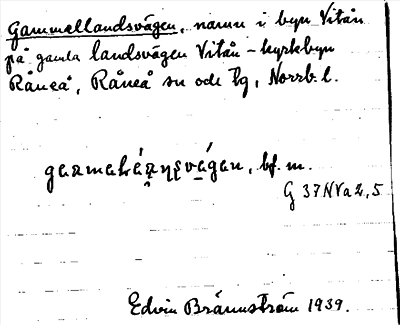 Gammellandsvägen, namn i byn Vitån
på gamla landsvägen Vitån - kyrkbyn
Råneå, Råneå sn och tg, Norrb. l.
bf. m.
G 37 NVa 2, 5
Edvin Brännström 1939.